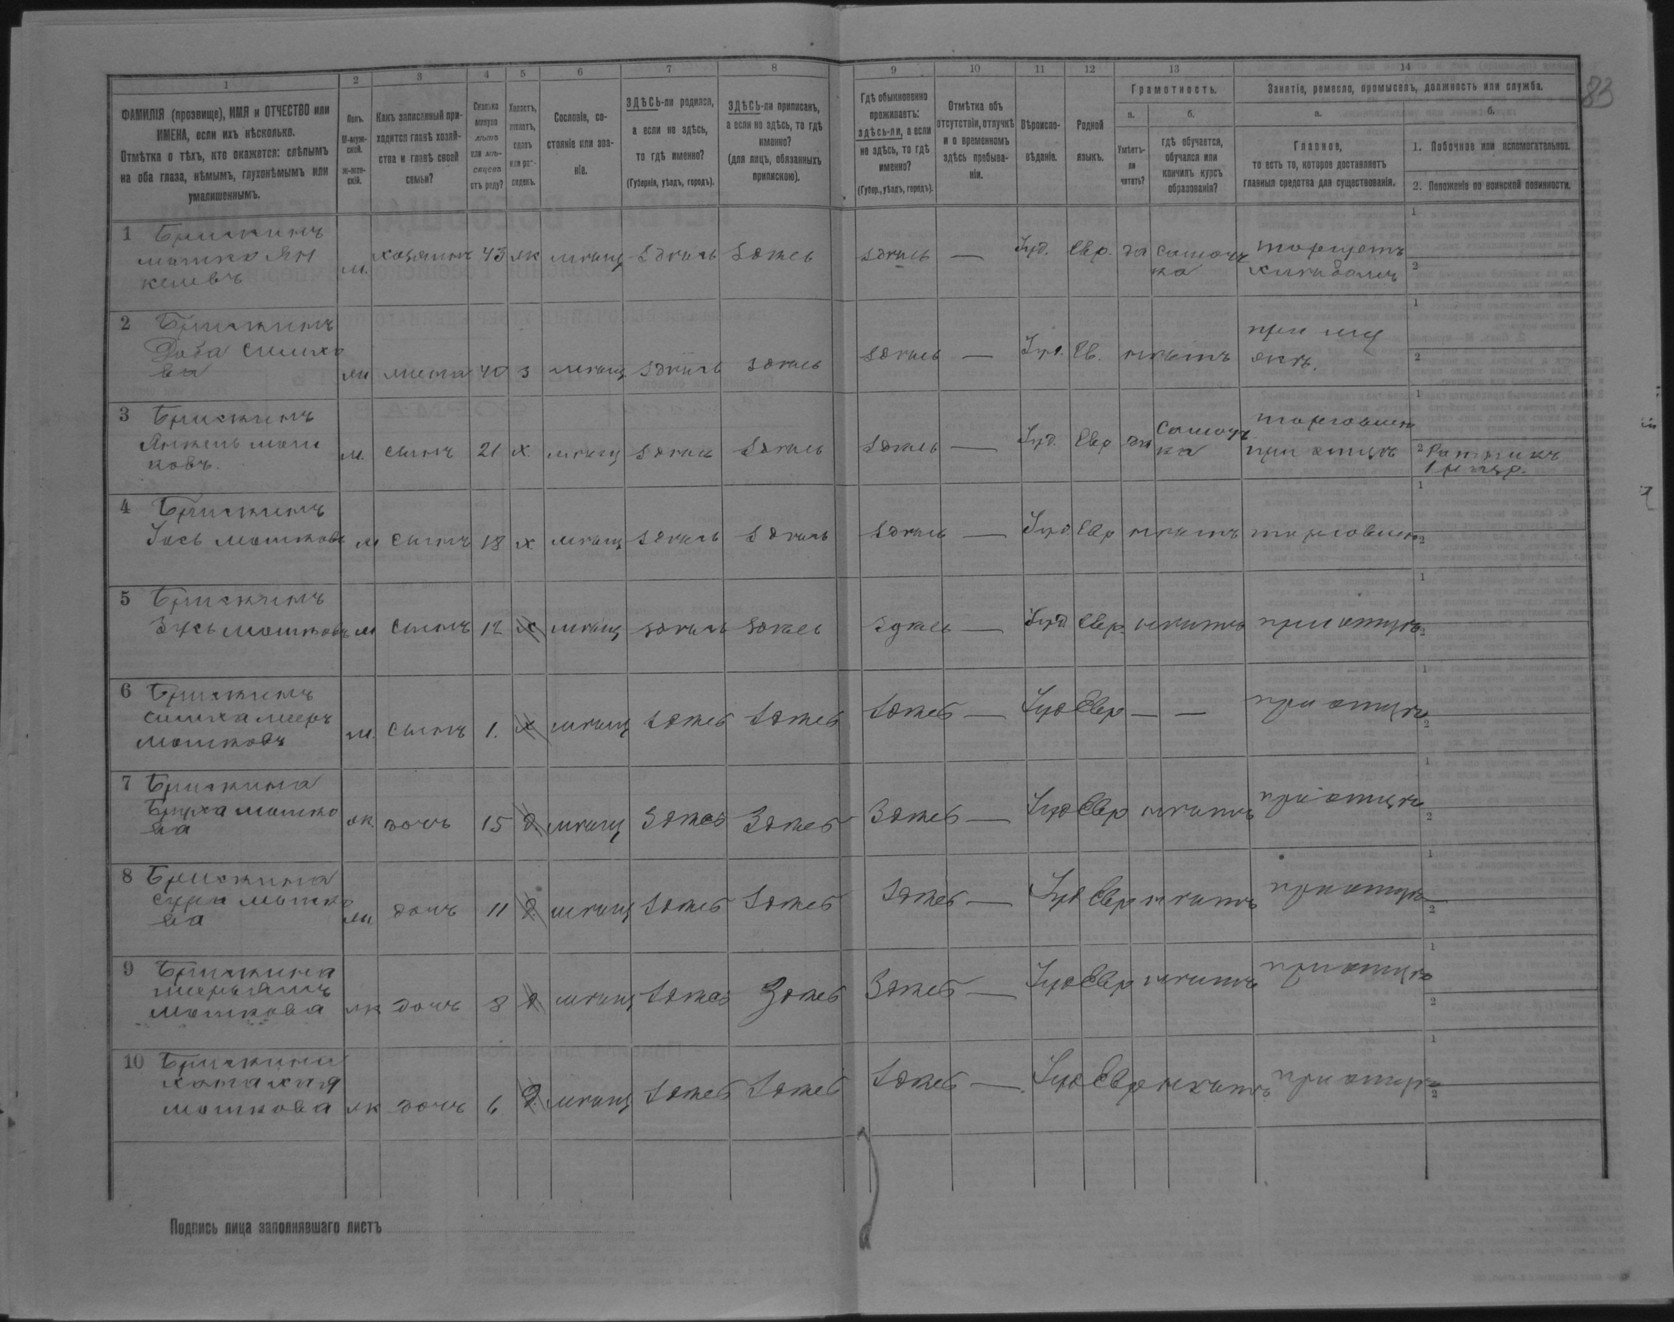 83
1
2
3
4
5
6
7
8
9
10
11
12
13
14
ФАМИЛІЯ (прозвище), ИМЯ и ОТЧЕСТВО или
ИМЕНА, если ихъ нѣсколько.
Отмѣтка о тѣхъ, кто окажется: слѣпымъ
на оба глаза, нѣмымъ, глухонѣмымъ или
умалишеннымъ.
Полъ.
М-муж-
ской.
Ж-жен-
скій.
Какъ записанный при-
ходится главѣ хозяй-
ства и главѣ своей
семьи?
Сколько
минуло
лѣтъ
или мѣ-
сяцевъ
отъ роду?
Холостъ,
женатъ,
вдовъ
или раз-
веденъ.
Сословіе, со-
стояніе или зва-
ніе.
ЗДѢСЬ-ли родился,
а если не здѣсь,
то гдѣ именно?
(Губернія, уѣздъ, городъ).
ЗДѢСЬ-ли приписанъ,
а если не здѣсь, то гдѣ
именно?
(для лицъ, обязанныхъ
припискою).
Гдѣ обыкновенно
проживаетъ:
здѣсь-ли, а если
не здѣсь, то гдѣ
именно?
(Губер., уѣздъ, городъ).
Отмѣтка объ
отсутствіи, отлучкѣ
и о временномъ
здѣсь пребыва-
ніи.
Вѣроиспо-
вѣданіе.
Родной
языкъ.
Грамотность.
а.
Умѣетъ-
ли
читать?
б.
гдѣ обучается,
обучался или
кончилъ курсъ
образованія?
Занятіе, ремесло, промыселъ, должность или служба.
а.
Главное,
то есть то, которое доставляетъ
главныя средства для существованія.
б.
1. Побочное или вспомогательное.
2. Положеніе по воинской повинности.
1 Брискинъ
мошко Ян
келевъ
м. хозяинъ 43 ж мѣщ здѣсь здѣсь здѣсь — Іуд. Евр. да самоуч
ка
1
2
2 Брискинъ
Доба Симхо
ва
жена 40 з мѣщ здѣсь здѣсь здѣсь — Іуд. Ев. нѣтъ
1
2
3 Брискинъ
Янкель мош
ковъ.
м. сынъ 21 х мѣщ здѣсь здѣсь здѣсь — Іуд. Евр да самоуч
ка
при отцѣ
1
2
4 Брискинъ
мошковъ м сынъ 18 х мѣщ здѣсь здѣсь здѣсь — Іуд. Евр нѣтъ
1
2
5 Брискинъ
Зусь мошковъ м сынъ 12 х мѣщ здѣсь здѣсь здѣсь — Іуд Евр. нѣтъ при отцѣ
1
2
6 Брискинъ
симха мееръ
мошковъ
м. сынъ 1. х мѣщ здѣсь здѣсь здѣсь — Іуд Евр — — при отцѣ
1
2
7 Брискина
мошко
ва
ж дочь 15 д мѣщ здѣсь здѣсь здѣсь — Іуд Евр нѣтъ при отцѣ
1
2
8 Брискина
сура мошко
ва
дочь 11 д мѣщ здѣсь здѣсь здѣсь — Іуд Евр нѣтъ при отцѣ
1
2
9 Брискина
мошкова ж дочь 8 д мѣщ здѣсь здѣсь здѣсь — Іуд Евр нѣтъ при отцѣ
1
2
10 Брискина
мошкова ж дочь 6 д. мѣщ здѣсь здѣсь здѣсь — Іуд Евр нѣтъ при отцѣ
1
2
Подпись лица заполнявшаго листъ